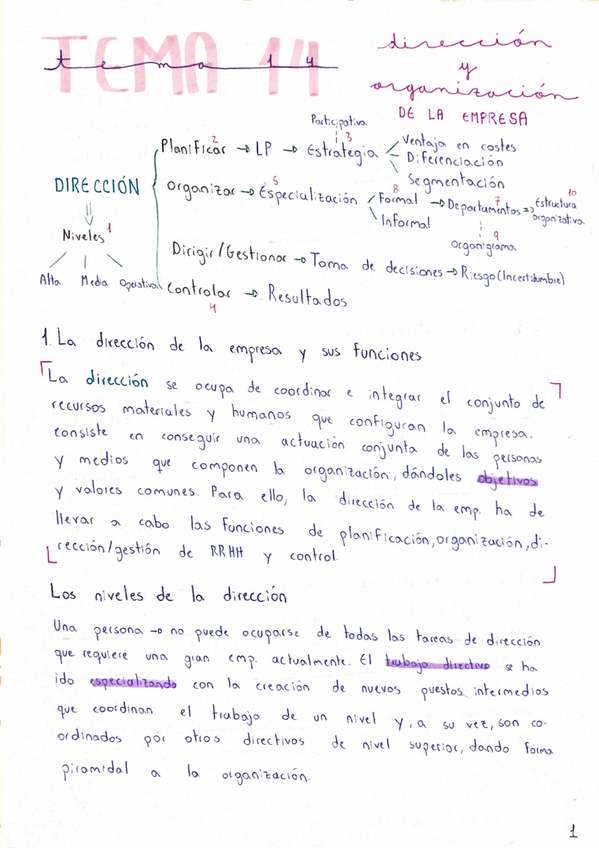 TEMA 14
tema 14
dirección
y
organización
DE LA EMPRESA
Participativa
2
3
Planificar → LP → Estrategia
Ventaja en costes
Diferenciación
Segmentación
DIRECCIÓN
5
8
7
10
Organizar → Especialización
Formal → Departamentos ⇒ Estructura organizativa
Informal
9
Organigrama
Niveles 1
Alta Media Operativa
Dirigir/Gestionar → Toma de decisiones → Riesgo (Incertidumbre)
Controlar → Resultados
4
1. La dirección de la empresa y sus funciones
La dirección se ocupa de coordinar e integrar el conjunto de
recursos materiales y humanos que configuran la empresa.
Consiste en conseguir una actuación conjunta de las personas
y medios que componen la organización, dándoles objetivos
y valores comunes. Para ello, la dirección de la emp. ha de
llevar a cabo las funciones de planificación, organización, di-
rección/gestión de RRHH y control.
Los niveles de la dirección
Una persona → no puede ocuparse de todas las tareas de dirección
que requiere una gran emp. actualmente. El trabajo directivo se ha
ido especializando con la creación de nuevos puestos intermedios
que coordinan el trabajo de un nivel y, a su vez, son co-
ordinados por otros directivos de nivel superior, dando forma
piramidal a la organización.
1